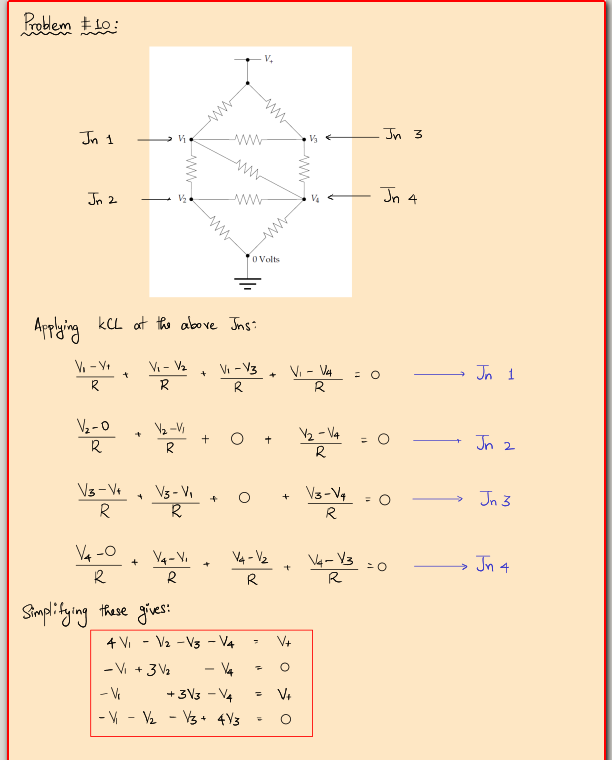 Problem #10:
V+
Jn 1 V1 V3 Jn 3
Jn 2 V2 V4 Jn 4
0 Volts
Applying KCL at the above Jns:
(V1 - V+)/R + (V1 - V2)/R + (V1 - V3)/R + (V1 - V4)/R = 0 → Jn 1
(V2 - 0)/R + (V2 - V1)/R + 0 + (V2 - V4)/R = 0 → Jn 2
(V3 - V+)/R + (V3 - V1)/R + 0 + (V3 - V4)/R = 0 → Jn 3
(V4 - 0)/R + (V4 - V1)/R + (V4 - V2)/R + (V4 - V3)/R = 0 → Jn 4
Simplifying these gives:
4V1 - V2 - V3 - V4 = V+
-V1 + 3V2 - V4 = 0
-V1 + 3V3 - V4 = V+
-V1 - V2 - V3 + 4V3 = 0